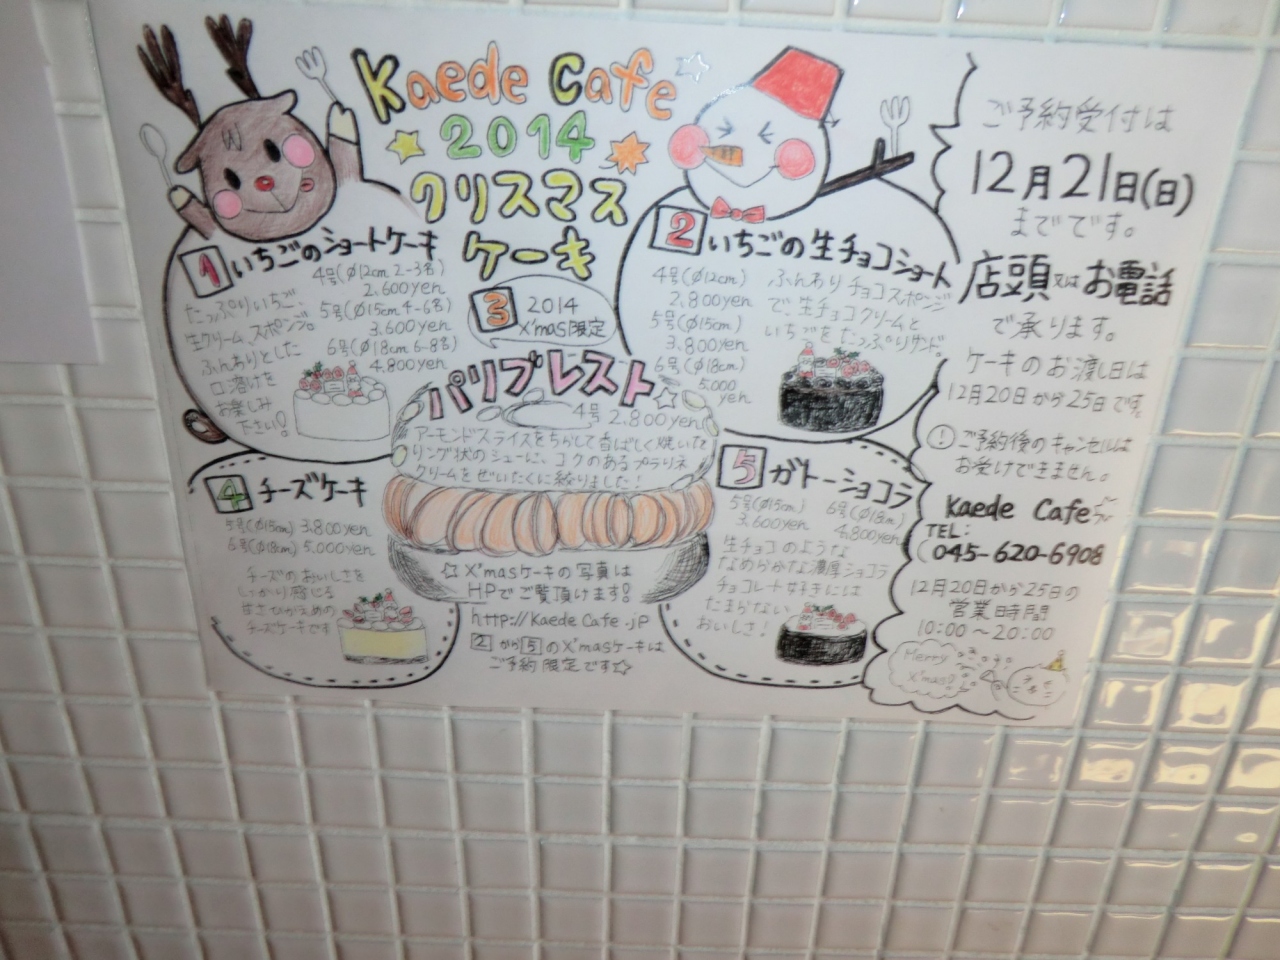 Kaede Cafe
2014
クリスマス
ケーキ
1 いちごのショートケーキ
4号(Ø12cm 2-3名)
2,600yen
5号(Ø15cm 4-6名)
3,600yen
6号(Ø18cm 6-8名)
4,800yen
たっぷりいちご、
生クリーム、スポンジ。
ふんわりとした
口溶けを
お楽しみ
下さい!
2 いちごの生チョコショート
4号(Ø12cm)
2,800yen
5号(Ø15cm)
3,800yen
6号(Ø18cm)
5,000
yen
ふんわりチョコスポンジ
で、生チョコクリームと
いちごをたっぷりサンド。
3 2014
X'mas限定
パリブレスト
4号 2,800yen
アーモンドスライスをちらして香ばしく焼いた
リング状のシューに、コクのあるプラリネ
クリームをぜいたくに絞りました!
4 チーズケーキ
5号(Ø15cm) 3,800yen
6号(Ø18cm) 5,000yen
チーズのおいしさを
しっかり感じる
甘さひかえめの
チーズケーキです
5 ガトーショコラ
5号(Ø15cm)
3,600yen
6号(Ø18cm)
4,800yen
生チョコのような
なめらかな濃厚ショコラ
チョコレート好きには
たまらない
おいしさ!
☆X'masケーキの写真は
HPでご覧頂けます!
http://KaedeCafe.jp
2から5のX'masケーキは
ご予約限定です☆
ご予約受付は
12月21日(日)
までです。
店頭又はお電話
で承ります。
ケーキのお渡し日は
12月20日から25日です。
! ご予約後のキャンセルは
お受けできません。
Kaede Cafe
TEL:
(045-620-6908
12月20日から25日の
営業時間
10:00～20:00
Merry
X'mas?